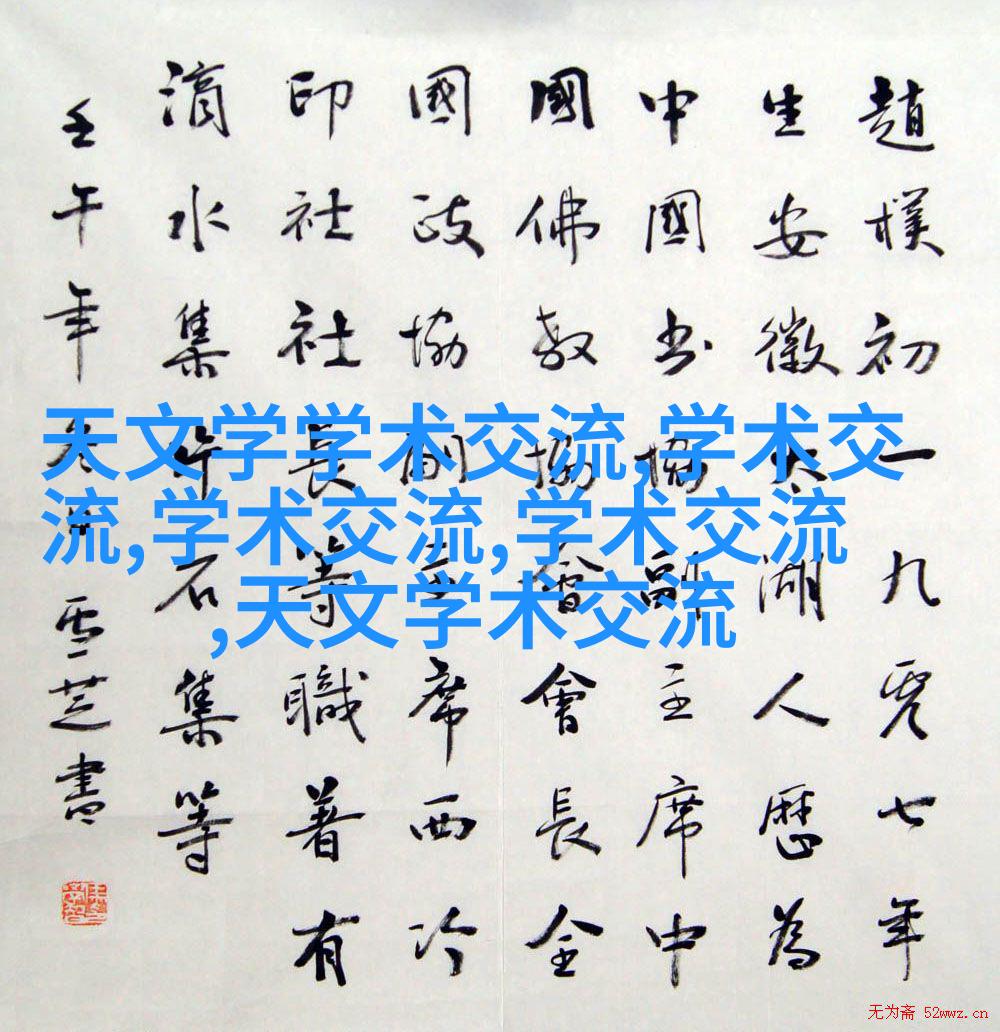 趙樸初一九零七年
生安徽太湖人歷為
中國书協副主席中
國佛教協會會長全
國政協副主席西冷
印社社長等職著有
滴水集片石集等
壬午年冬月雪芝書
天文学学术交流,学术交
流,学术交流,学术交流
,天文学术交流
无为斋 52wwz.cn